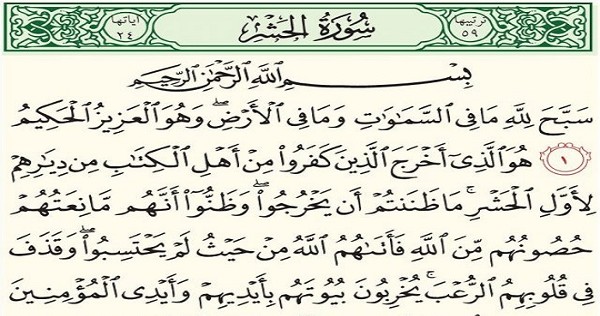 ترتيبها ٥٩ سُورَةُ الحَشْرِ آياتها ٢٤
بِسْمِ اللَّهِ الرَّحْمَٰنِ الرَّحِيمِ
سَبَّحَ لِلَّهِ مَا فِي السَّمَاوَاتِ وَمَا فِي الْأَرْضِ ۖ وَهُوَ الْعَزِيزُ الْحَكِيمُ
١ هُوَ الَّذِي أَخْرَجَ الَّذِينَ كَفَرُوا مِنْ أَهْلِ الْكِتَابِ مِن دِيَارِهِمْ
لِأَوَّلِ الْحَشْرِ ۚ مَا ظَنَنتُمْ أَن يَخْرُجُوا ۖ وَظَنُّوا أَنَّهُم مَّانِعَتُهُمْ
حُصُونُهُم مِّنَ اللَّهِ فَأَتَاهُمُ اللَّهُ مِنْ حَيْثُ لَمْ يَحْتَسِبُوا ۖ وَقَذَفَ
فِي قُلُوبِهِمُ الرُّعْبَ ۚ يُخْرِبُونَ بُيُوتَهُم بِأَيْدِيهِمْ وَأَيْدِي الْمُؤْمِنِينَ